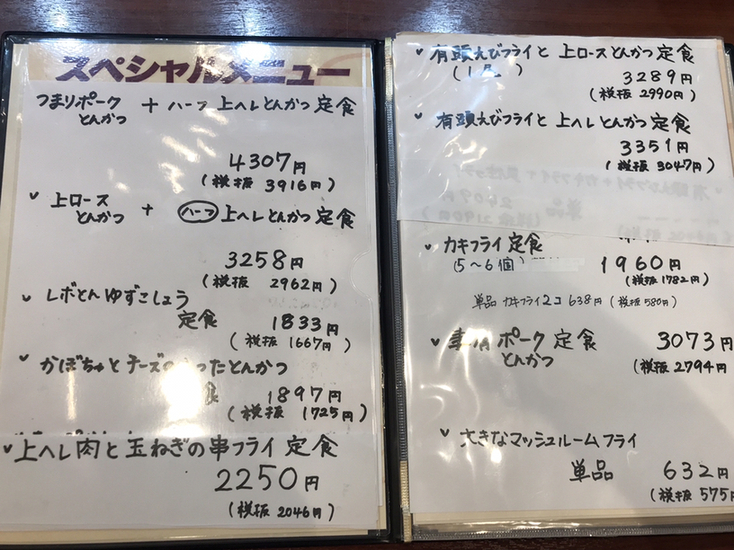 スペシャルメニュー
つまりポーク + ハーフ 上ヘレとんかつ 定食
とんかつ
4307円
(税抜 3916円)
上ロース + ハーフ 上ヘレとんかつ 定食
とんかつ
3258円
(税抜 2962円)
レボとんゆずこしょう
定食 1833円
(税抜 1667円)
かぼちゃとチーズの ったとんかつ
食 1897円
(税抜 1725円)
上ヘレ肉と玉ねぎの串フライ 定食
2250円
(税抜 2046円)
有頭えびフライと 上ロースとんかつ 定食
(1尾)
3289円
(税抜 2990円)
有頭えびフライと 上ヘレとんかつ 定食
3351円
(税抜 3047円)
カキフライ 定食
(5〜6個) 1960円
(税抜1782円)
単品 カキフライ2コ 638円 (税抜 580円)
ポーク 定食 3073円
とんかつ (税抜 2794円)
大きなマッシュルームフライ
単品 632円
(税抜 575円